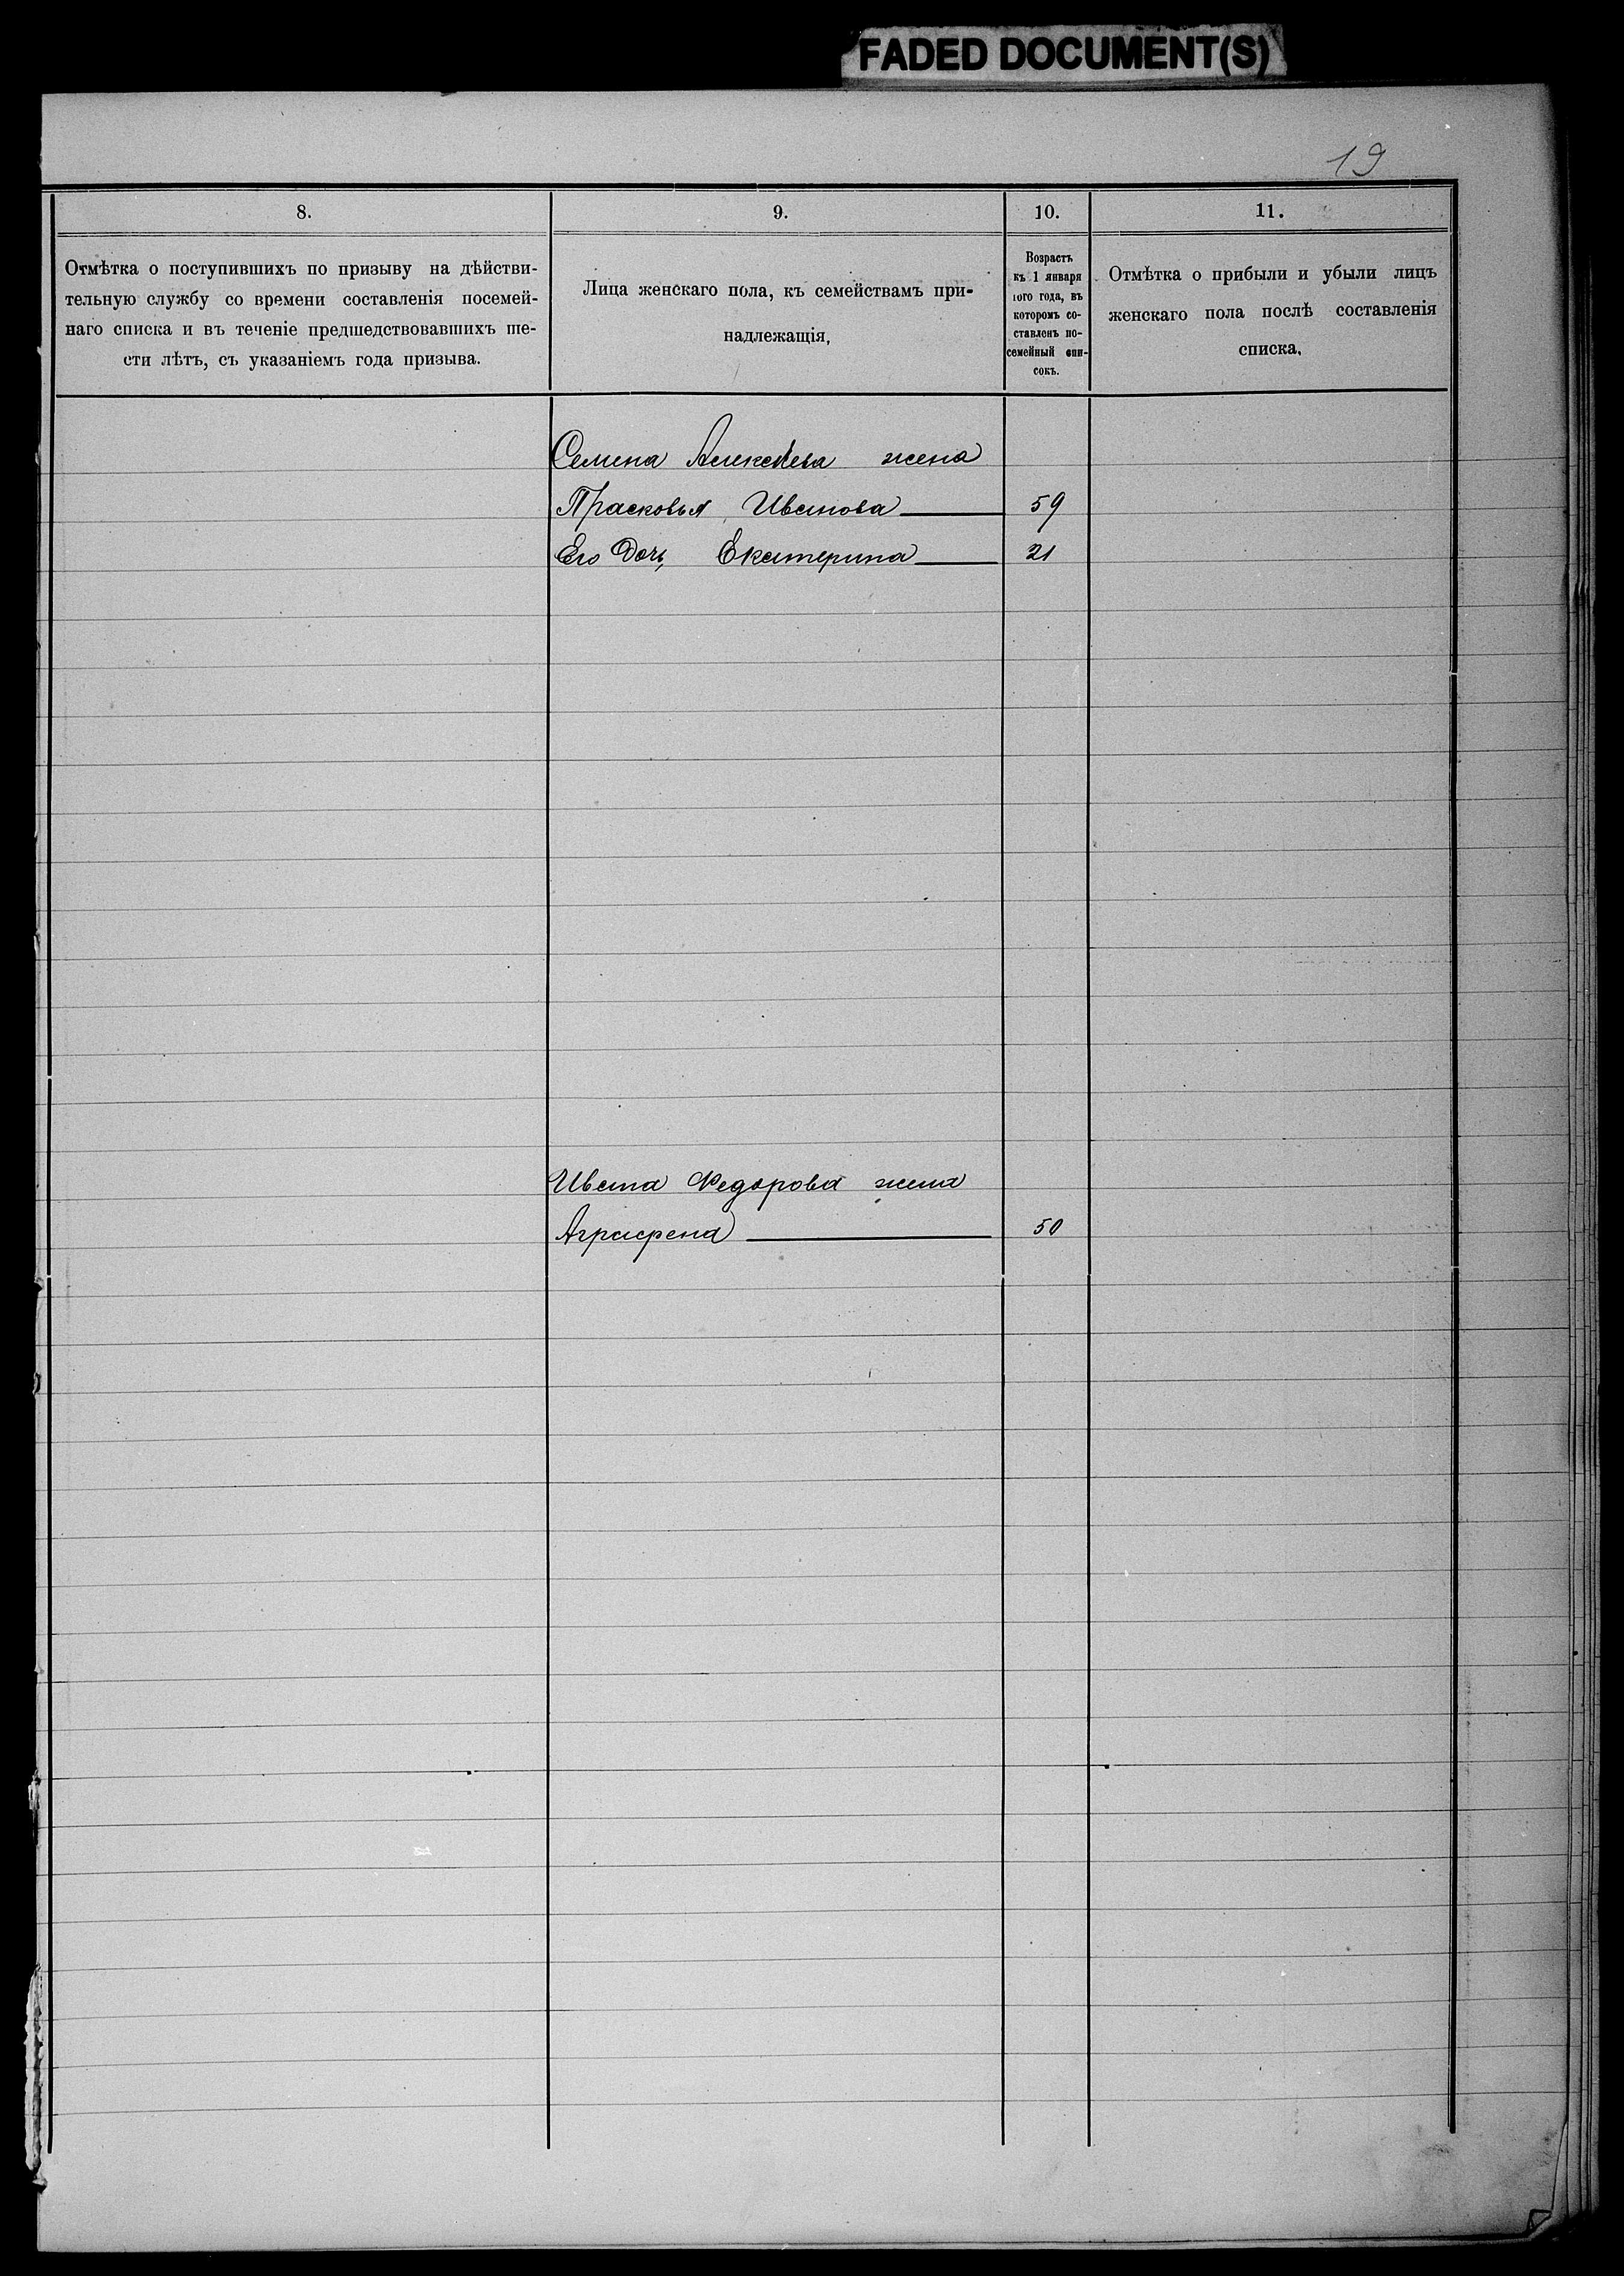 FADED DOCUMENT(S)
19
8.
9.
10.
11.
Отмѣтка о поступившихъ по призыву на дѣйстви-
тельную службу со времени составленія посемей-
наго списка и въ теченіе предшедствовавшихъ ше-
сти лѣтъ, съ указаніемъ года призыва.
Лица женскаго пола, къ семействамъ при-
надлежащія,
Возрастъ
къ 1 января
того года, въ
которомъ со-
ставленъ по-
семейный спи-
сокъ.
Отмѣтка о прибыли и убыли лицъ
женскаго пола послѣ составленія
списка.
Семена Алексѣева жена
Прасковья Иванова 59
Его Дочь, Екатерина 21
Ивана Федорова жена
Аграфена 50